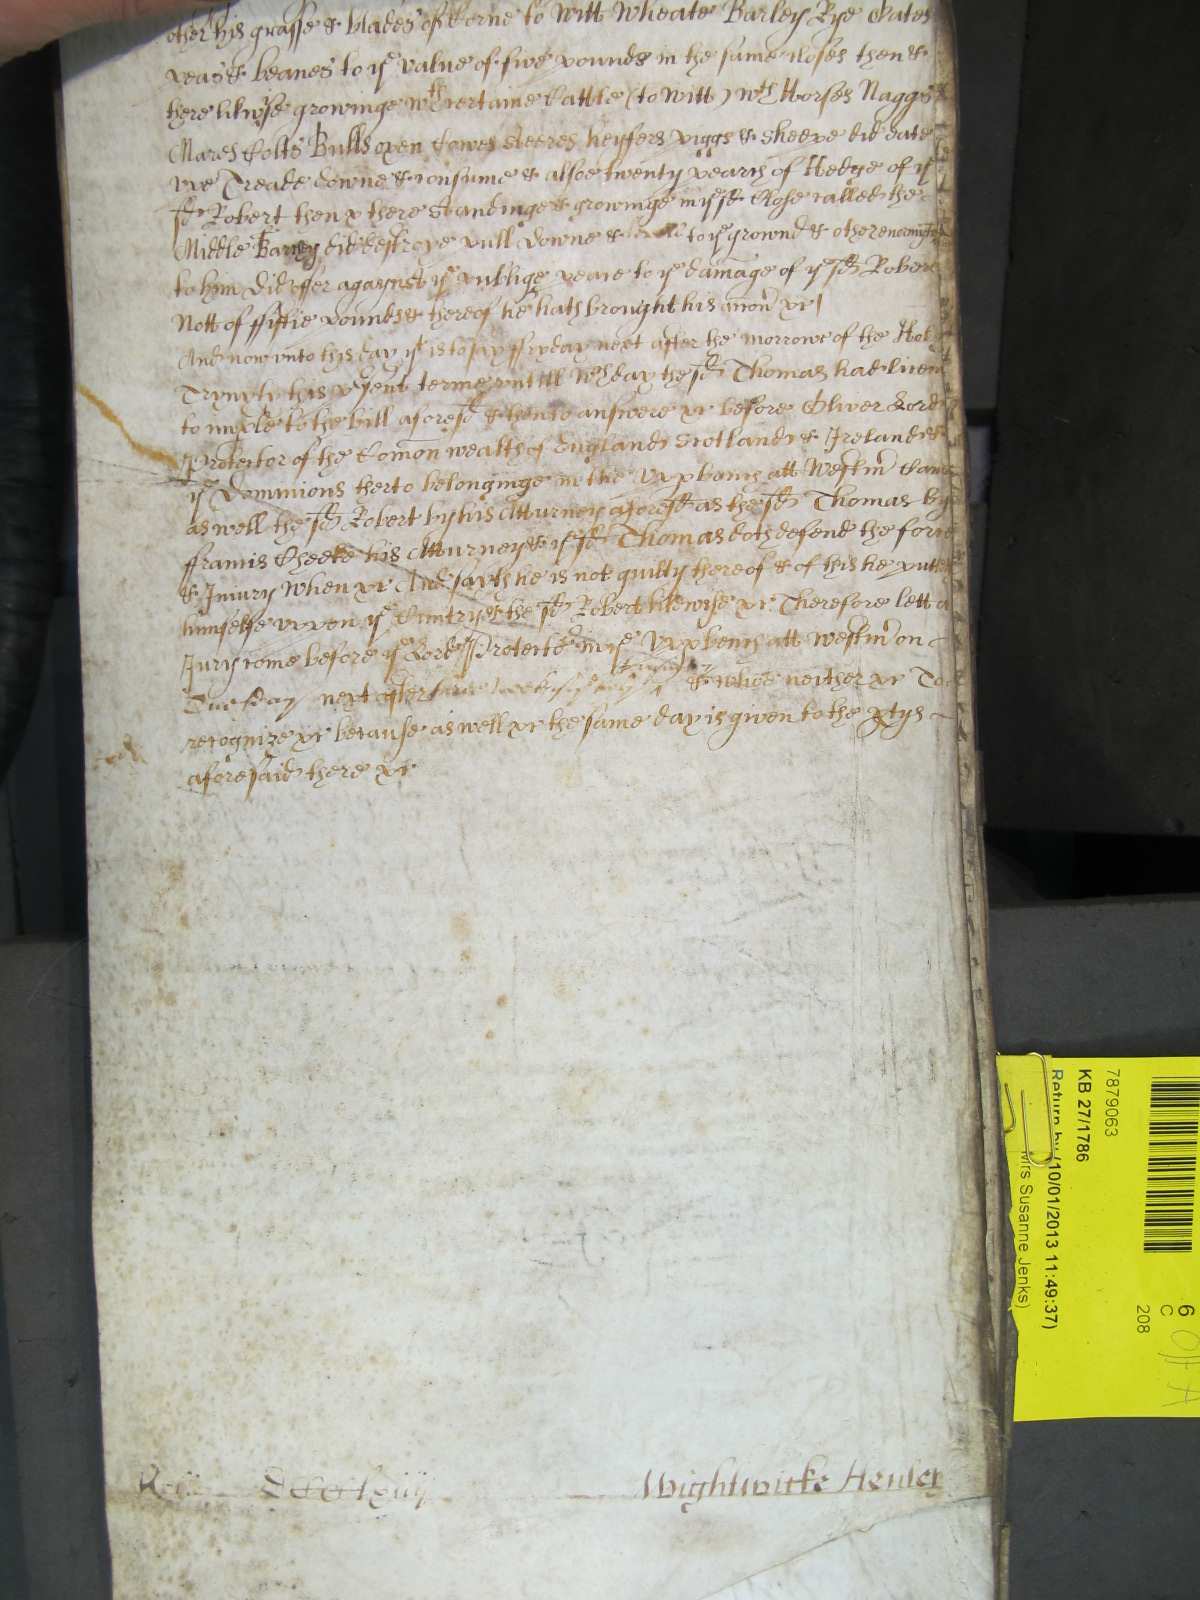 other his grasse & blades of Corne to Witt Wheate Barley Rye Oates
peas & beanes to ye value of five pounds in the same closes then &
there likwise growinge wth certaine Cattle (to Witt) wth Horses Naggs
Mares Colts Bulls oxen Cowes steeres heyfers piggs & sheepe did eate
upp Treade downe & consume & alsoe twenty pearch of Hedge of ye
sd Robert then & there standinge & growinge in ye sd Close called the
Middle did destroye pull downe & to ye grownd & other enormityes
to him did offer agaynst ye publiqe peace to ye damage of ye sd Robert
Nott of fiftie pounds & thereof he hath brought his accon &c
And now unto this day yt is to say ffryday next after the morrowe of the Holy
Trynyty this psent terme untill wch day the sd Thomas had licence
to imple to the bill aforesd & then to answere &c before Oliver Lord
Protector of the Comon wealth of England Scotland & Ireland &
ye Dominions therto belonginge in the upp bench att Westmr Came
as well the sd Robert by his Atturney aforesd as the sd Thomas by
ffrancis Cheeke his Atturney & ye sd Thomas doth defend the force
& Injury When &c And sayth he is not guilty thereof & of this he putteth
himselfe uppon ye Cuntry & the sd Robert likewise &c Therefore lett a
Jury come before ye Lord Protector in ye Upp bench att Westmr on
Tuesday next after & whoe neither &c To
recognize &c because as well &c the same day is given to the ptys
aforesaid there &c
Wightwicke Henley
7879063
KB 27/1786
Return by (10/01/2013 11:49:37)
Mrs Susanne Jenks)
6
C
208